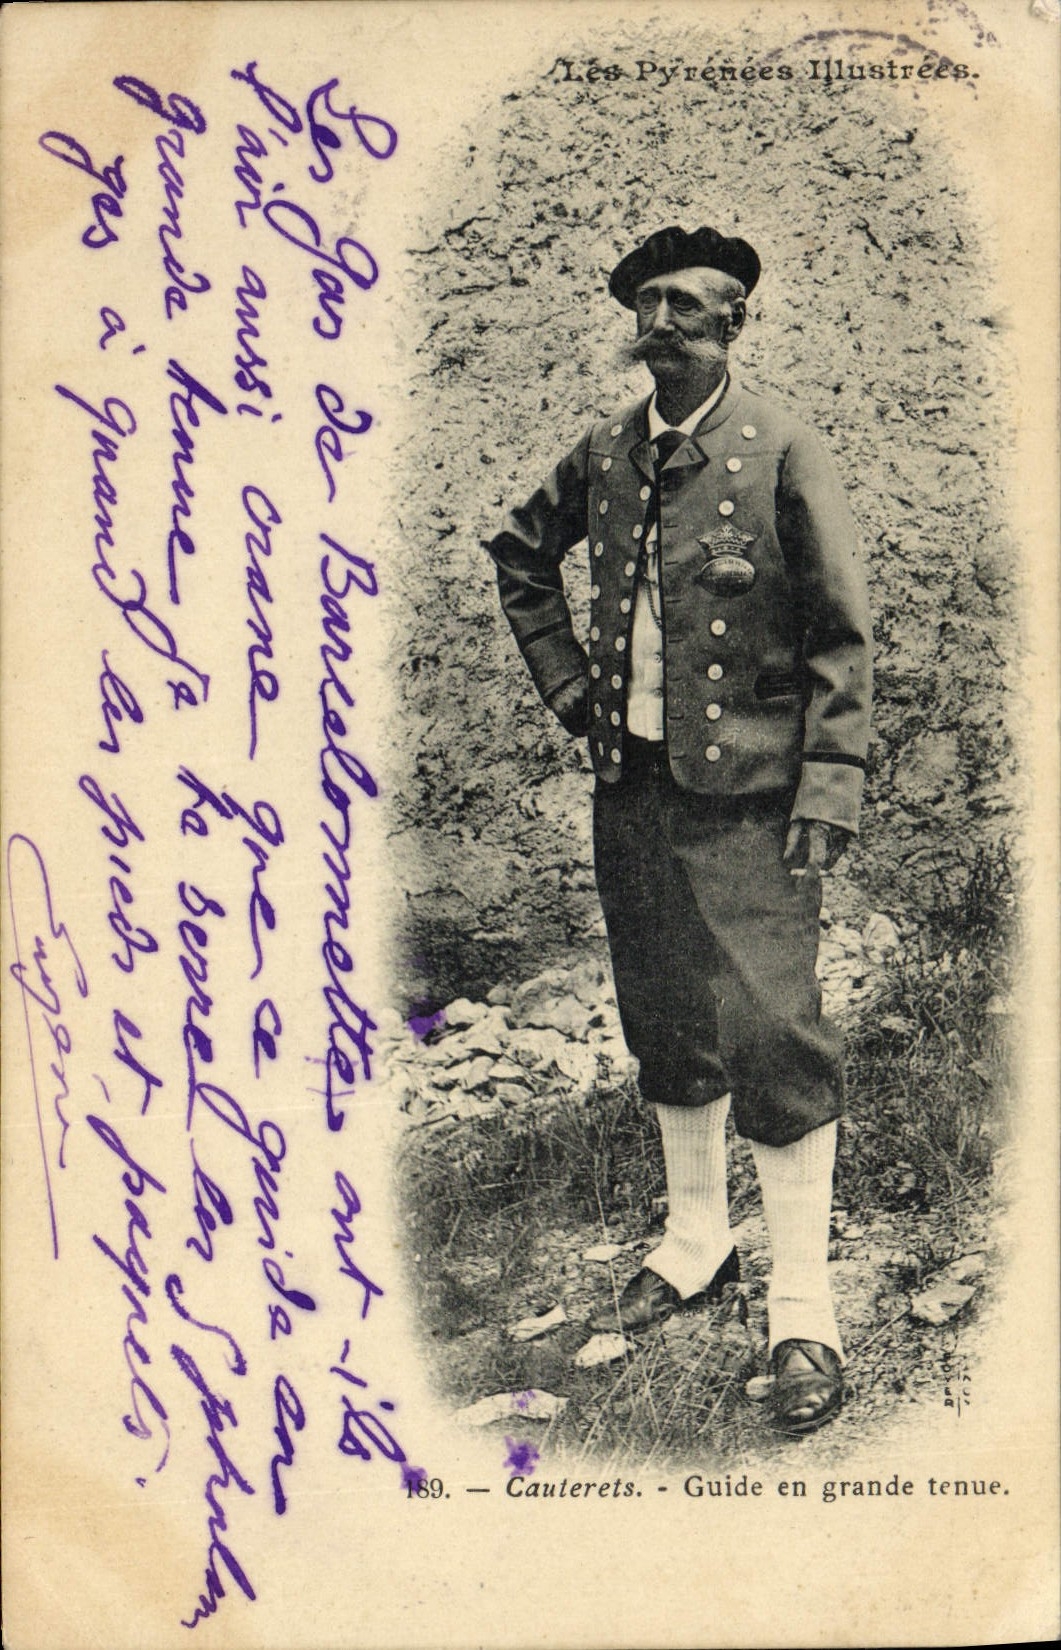 Les Pyrénées Illustrées.
Les Gas de Barcelonnette ont-ils
l'air aussi crane que ce guide en
grande tenue Je te serre les
ges à quand les pieds et paquets.
Eugène
189. — Cauterets. - Guide en grande tenue.